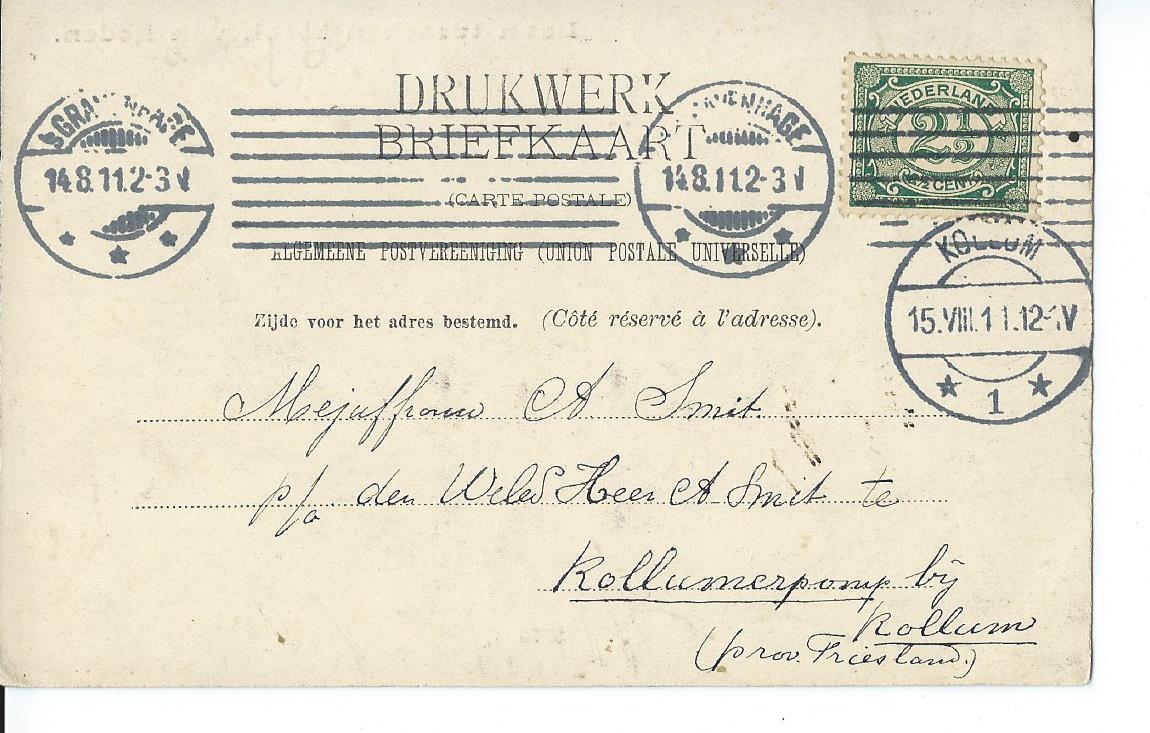 DRUKWERK
BRIEFKAART
(CARTE POSTALE)
ALGEMEENE POSTVEREENIGING (UNION POSTALE UNIVERSELLE)
Zijde voor het adres bestemd. (Côté réservé à l'adresse).
'SGRAVENHAGE
14.8.11.2-3 V
'SGRAVENHAGE
14.8.11.2-3 V
NEDERLAND
2½
2½ CENT
KOLLUM
15.VIII.11.12-1V
1
Mejuffrouw A Smit.
p/a den WelEd Heer A Smit te
Kollumerpomp bij
Kollum
(prov. Friesland.)